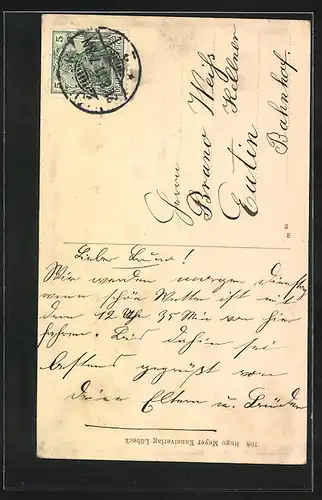 Herrn
Bruno Weiß
Kellner
Eutin
Bahnhof.
Lieber Bruno!
Wir werden morgen Dienstag
wenn schön Wetter ist mit
dem 12 Uhr 35 Min von hier
fahren. Bis dahin sei
bestens gegrüßt von
deine Eltern u. Brüder
108 Hugo Meyer Kunstverlag Lübeck